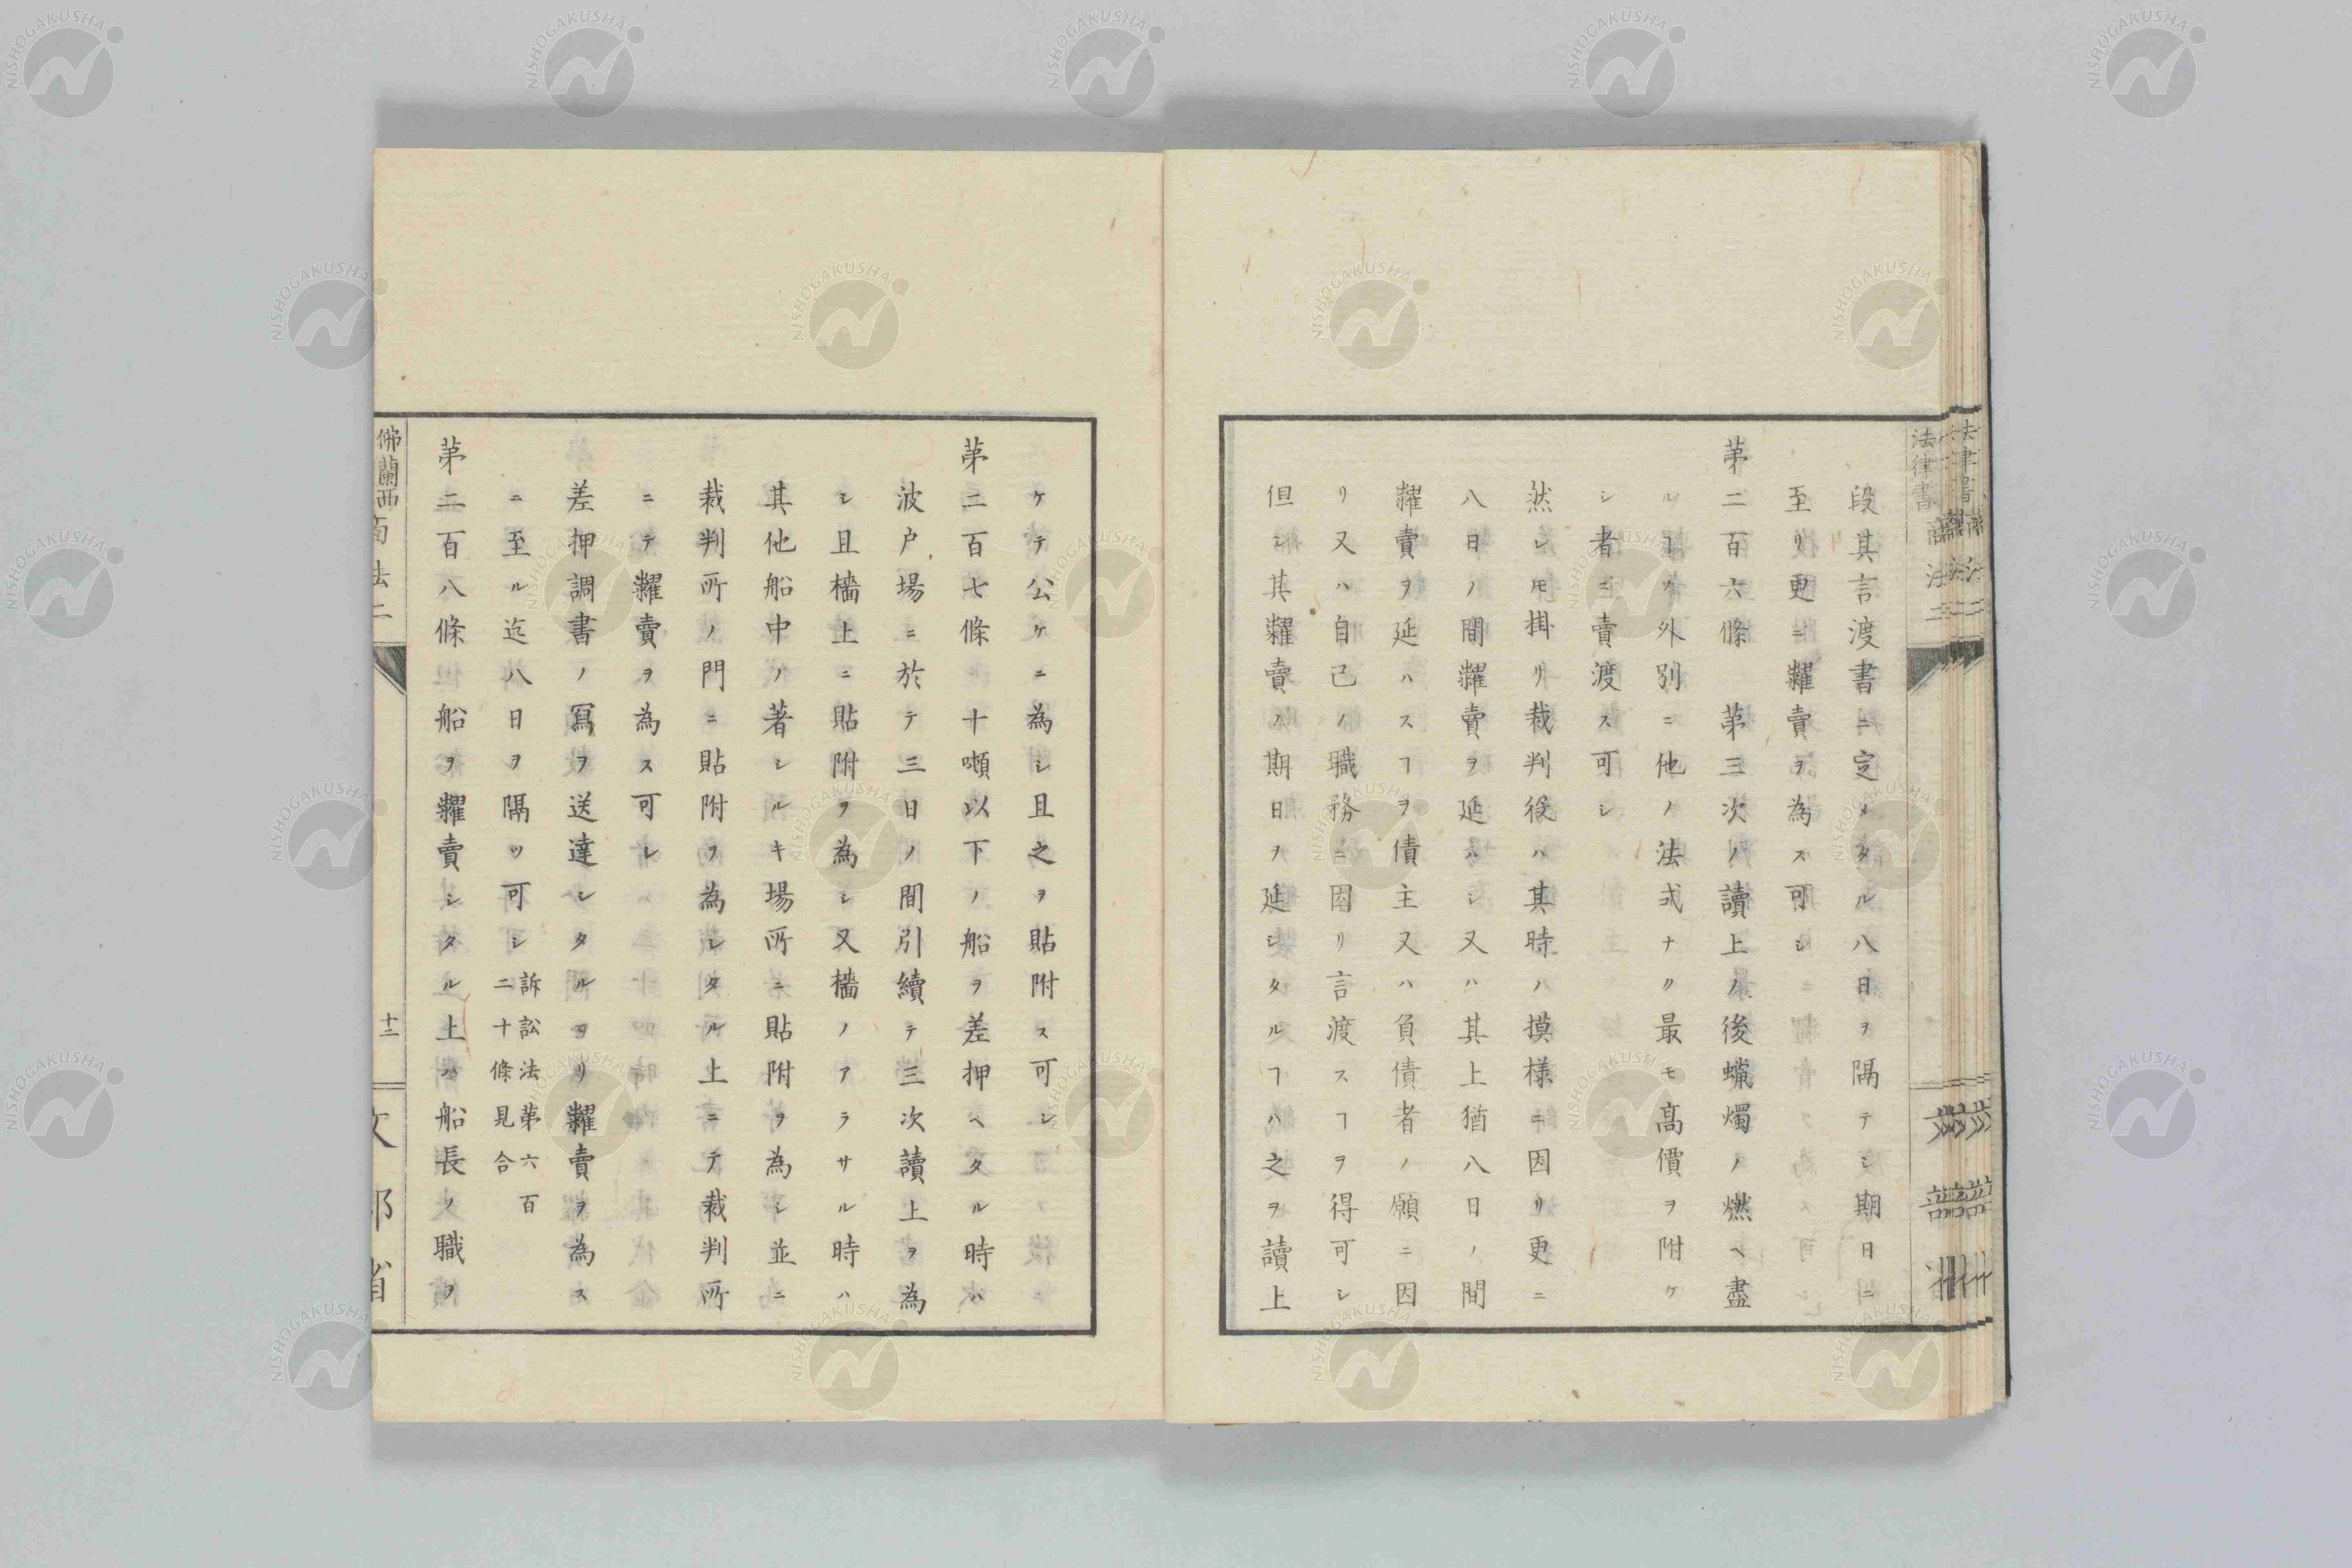 段其言渡書ニ定メタル八日ヲ隔テシ期日ニ
至リ更ニ糶賣ヲ為ス可シ
苐二百六條　苐三次ノ讀上ノ後蠟燭ノ燃ヘ盡
ルヿノ外別ニ他ノ法式ナク最モ髙價ヲ附ケ
シ者ニ賣渡ス可シ
然レ𪜈掛リ裁判役ハ其時ノ摸樣ニ因リ更ニ
八日ノ間糶賣ヲ延ハシ又ハ其上猶八日ノ間
糶賣ヲ延ハスヿヲ債主又ハ負債者ノ願ニ因
リ又ハ自己ノ職務ニ因リ言渡スヿヲ得可シ
但シ其糶賣ノ期日ヲ延シタルヿハ之ヲ讀上
ケテ公ケニ為シ且之ヲ貼附ス可シ
苐二百七條　十噸以下ノ船ヲ差押ヘタル時ハ
波戸場ニ於テ三日ノ間引續テ三次讀上ヲ為
シ且檣上ニ貼附ヲ為シ又檣ノアラサル時ハ
其他船中ノ著シルキ場所ニ貼附ヲ為シ並ニ
裁判所ノ門ニ貼附ヲ為シタル上ニテ裁判所
ニテ糶賣ヲ為ス可シ
差押調書ノ寫ヲ送達シタルヨリ糶賣ヲ為ス
ニ至ル迄八日ヲ隔ツ可シ訴訟法苐六百二十條見合
苐二百八條　船ヲ糶賣シタル上ハ船長ノ職ヲ
佛蘭西商法二
十二
文部省
法律書
商法二
NISHOGAKUSHA